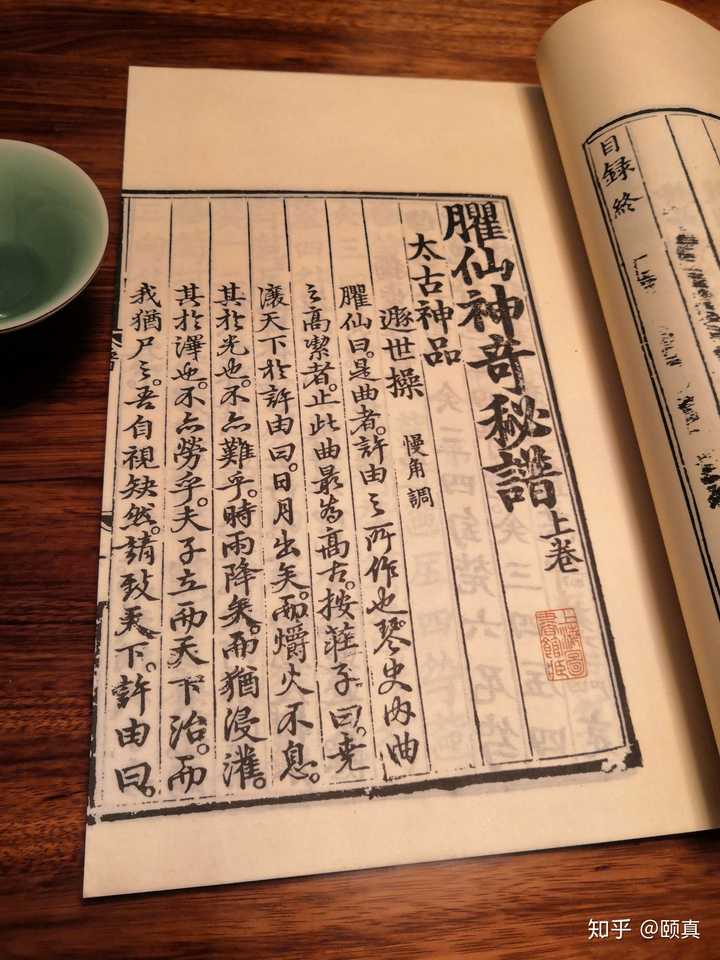 目録終
臞仙神奇秘譜上卷
上海圖書館藏
太古神品
遯世操 慢角調
臞仙曰。是曲者。許由之所作也。琴史内曲
之髙潔者。止此曲最為髙古。按莊子曰。堯
讓天下於許由曰。日月出矣。而爝火不息。
其於光也。不亦難乎。時雨降矣。而猶浸灌。
其於澤也。不亦勞乎。夫子立而天下治。而
我猶尸之。吾自視缺然。請致天下。許由曰。
知乎 @颐真